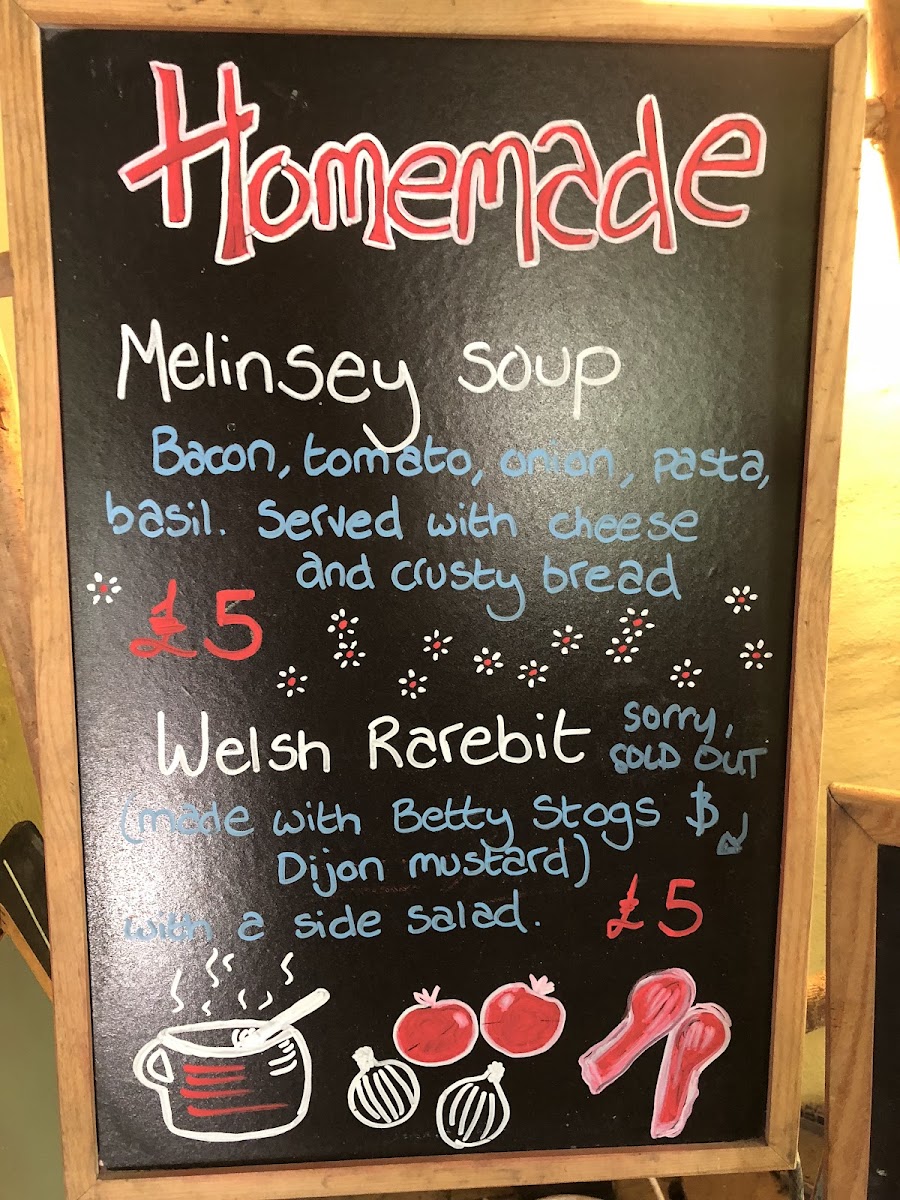 Homemade
Melinsey soup
Bacon, tomato, onion, pasta,
basil. Served with cheese
and crusty bread
£5
Welsh Rarebit
sorry,
SOLD OUT
(made with Betty Stogs &
Dijon mustard)
with a side salad.
£5